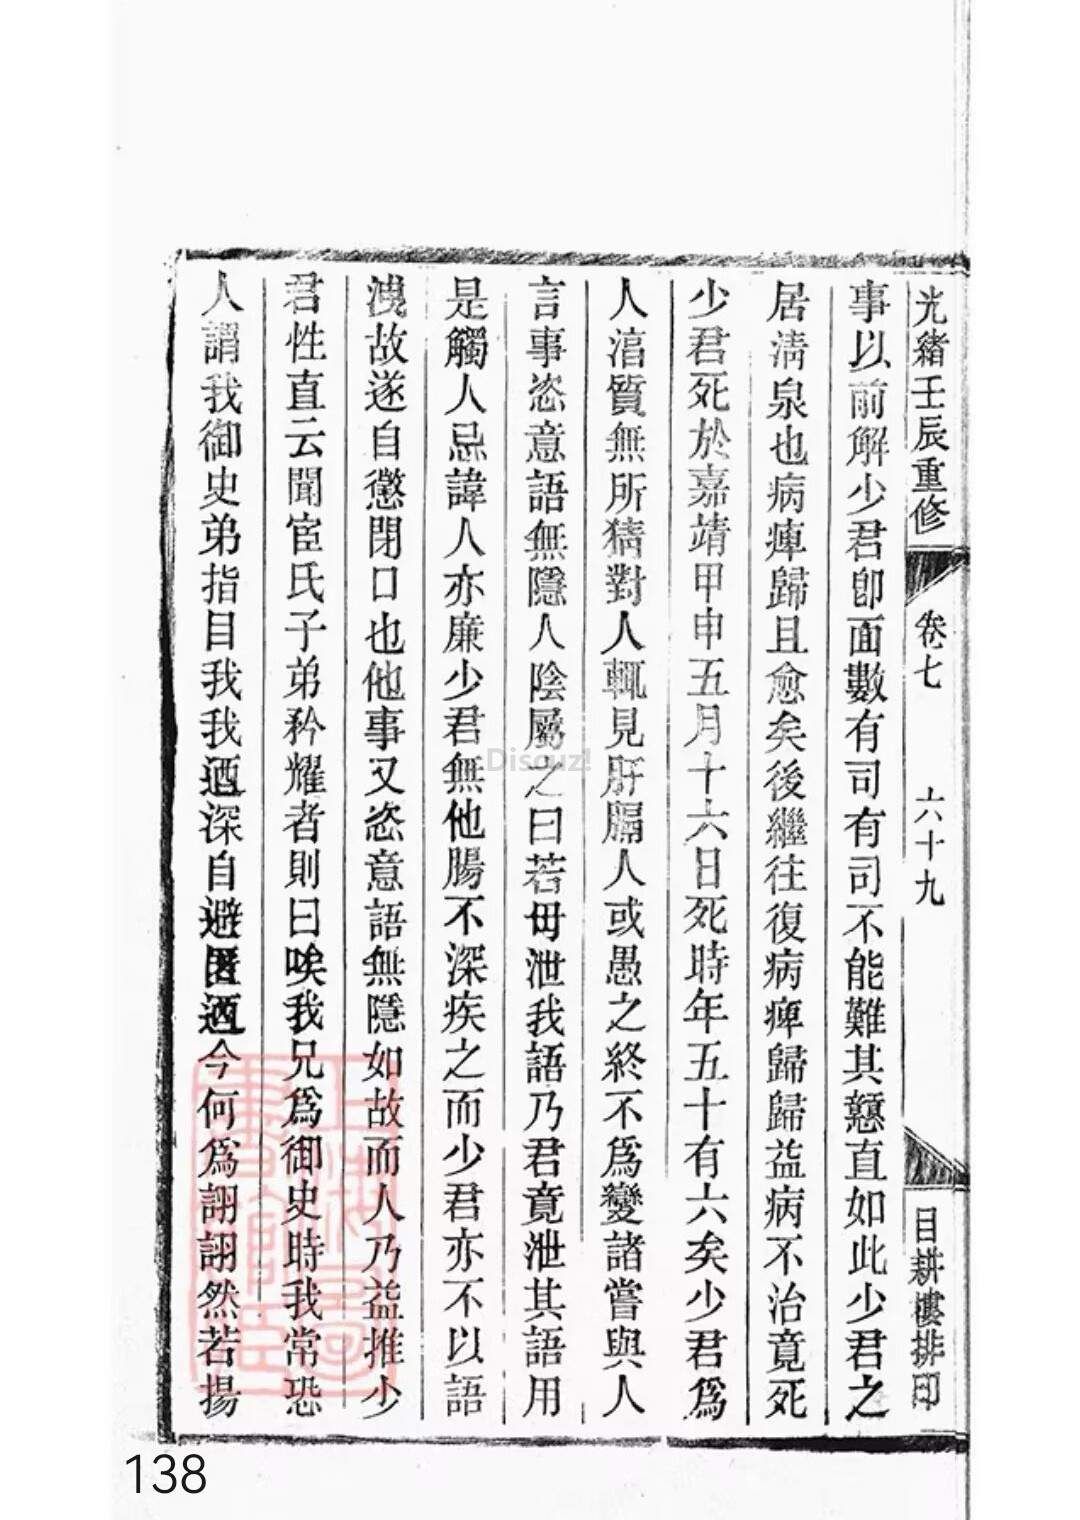 光緒壬辰重修
卷七
六十九
目耕樓排印
事以前解少君卽面數有司有司不能難其戇直如此少君之
居淸泉也病痺歸且愈矣後繼往復病痺歸歸益病不治竟死
少君死於嘉靖甲申五月十六日死時年五十有六矣少君爲
人湻質無所猜對人輒見肝膈人或愚之終不爲變諸嘗與人
言事恣意語無隱人陰屬之曰若毋泄我語乃君竟泄其語用
是觸人忌諱人亦廉少君無他腸不深疾之而少君亦不以語
洩故遂自懲閉口也他事又恣意語無隱如故而人乃益推少
君性直云聞宦氏子弟矜耀者則曰唉我兄爲御史時我常恐
人謂我御史弟指目我我迺深自避匿迺今何爲詡詡然若揚
上海圖書館藏
Discuz!
138